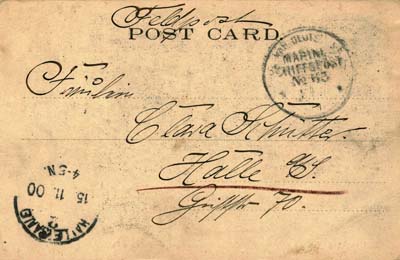 Feldpost
POST CARD.
KAIS. DEUTSCHE
MARINE
SCHIFFSPOST
No 63
Fräulein
Clara Schütter.
Halle a/S.
70.
HALLE (SAALE)
2
15.11.00
4-5N.